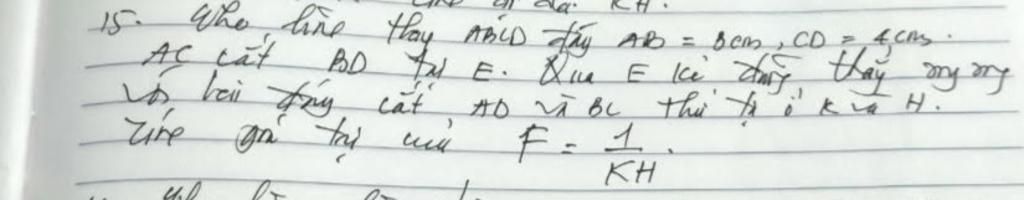 KH.
15. Cho hình thang ABCD đáy AB = 8cm, CD = 4cm.
AC cắt BD tại E. Qua E kẻ đường thẳng song song
với hai đáy cắt AD và BC thứ tự ở K và H.
Tính giá trị của F = 1/KH.